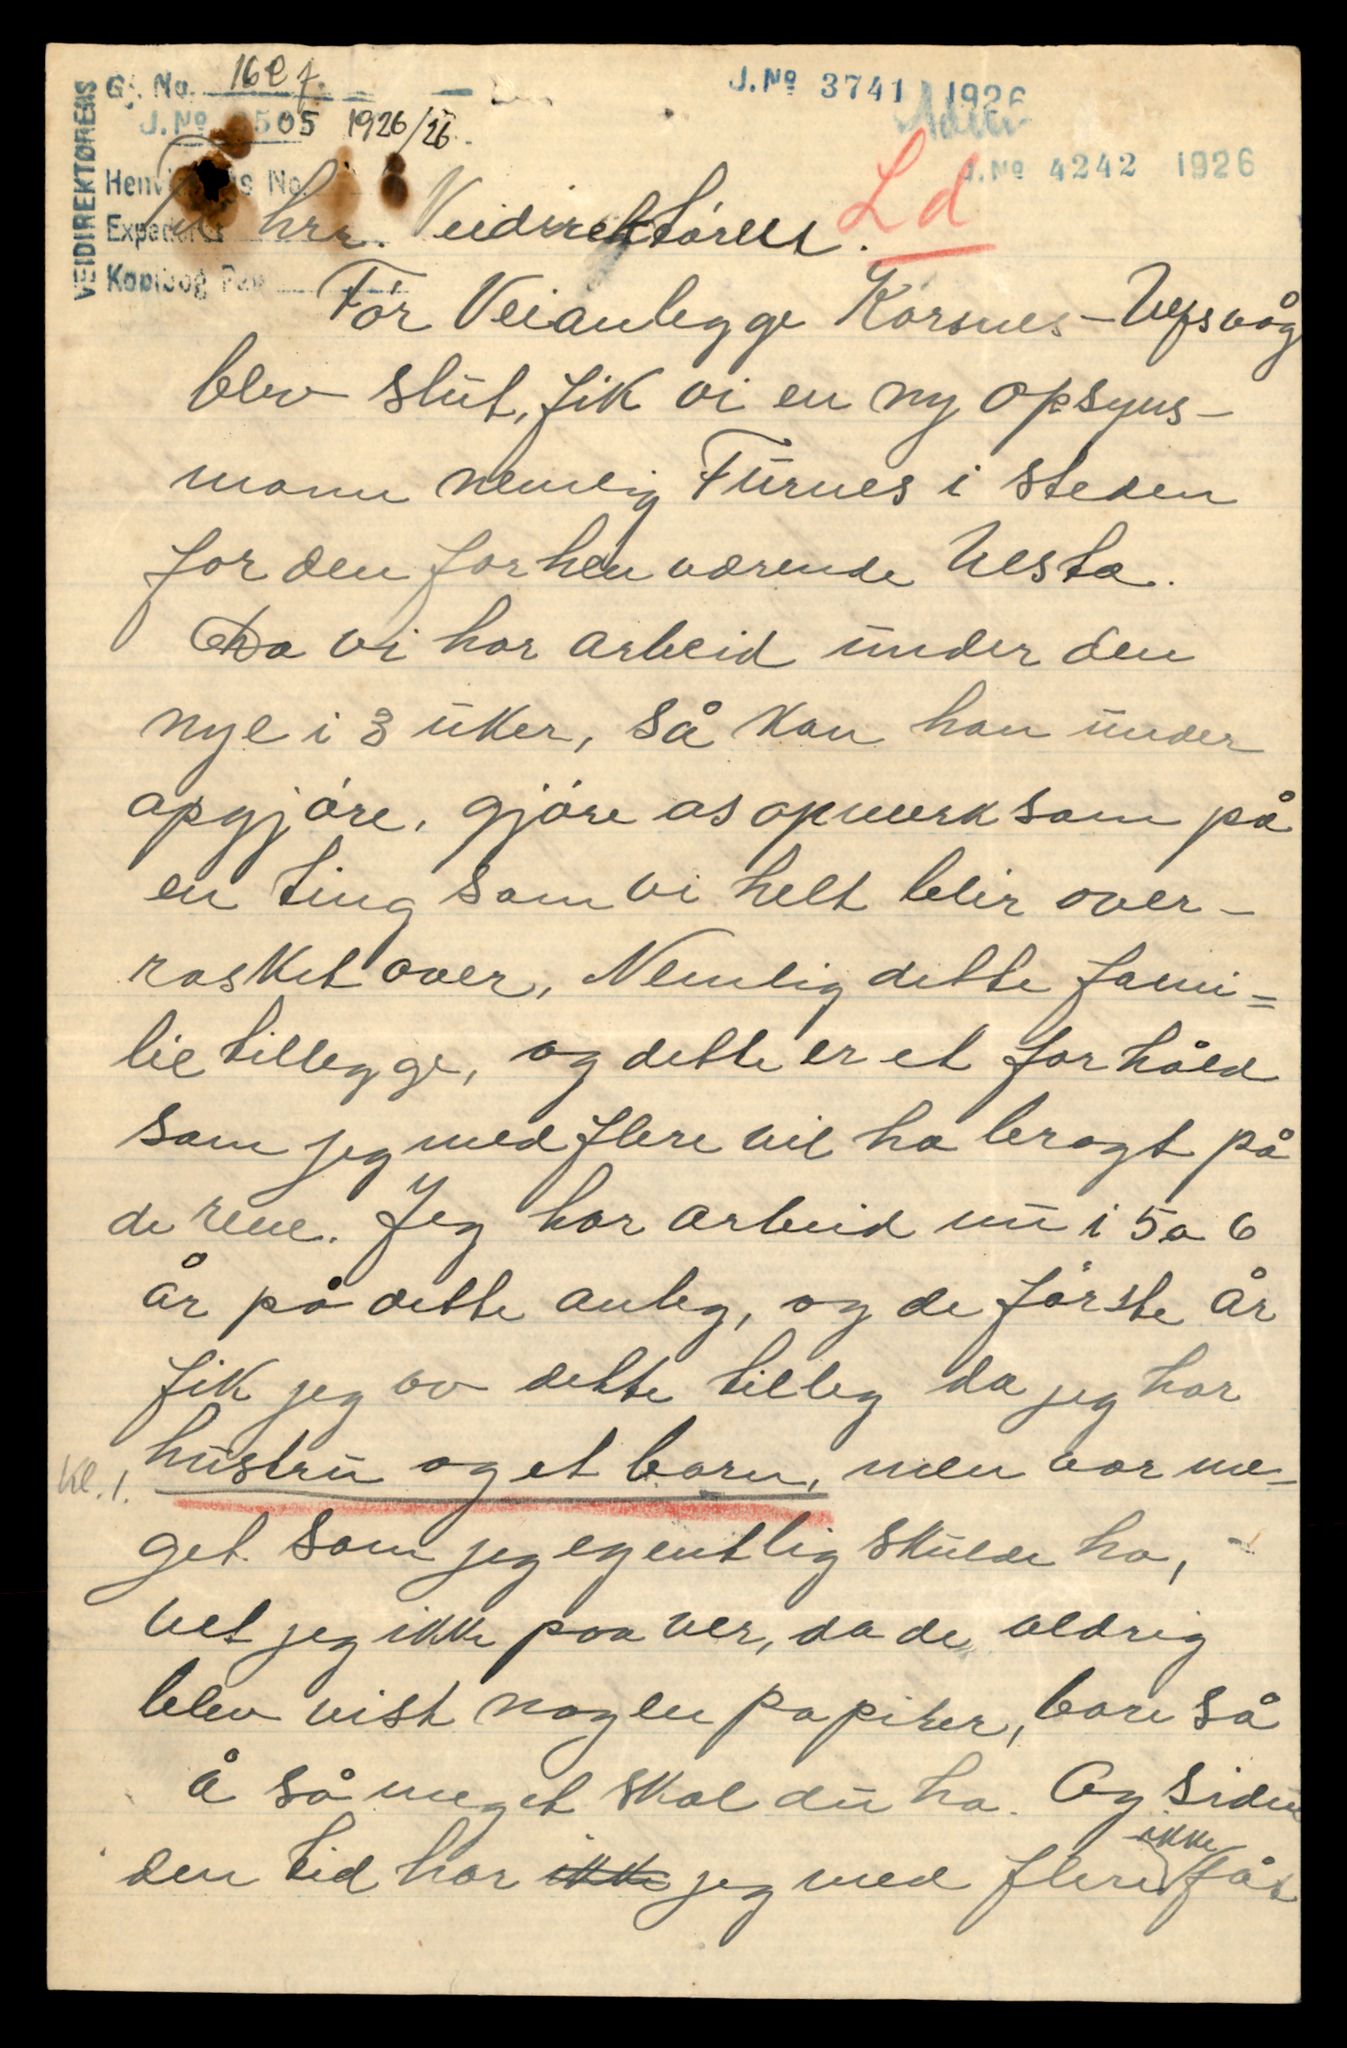 VEIDIREKTØRENS
Gj. No. 16 e f.
J. No 05 1926/26.
J. No 3741 1926
J. No 4242 1926
Ld
Henvisnings No.
Exped
Kopibog Pag
Til hrr. Veidirektören.
För Veianlegge Korsnes - Vefsvåg
blev slut, fik vi en ny opsyns-
mann nemlig Furnes i steden
for den forhenværende Vesta.
Da vi har arbeid under den
nye i 3 uker, så kan han under
opgjöre, gjöre os opmerksom på
en ting som vi helt blir over-
rasket over, Nemlig dette fami=
lie tillegge, og dette er et forhåld
som jeg med flere vil ha bragt på
de rene. Jeg har arbeid nu i 5 a 6
år på dette anleg, og de förste år
fik jeg av dette tilleg da jeg har
kl. 1. hustru og et barn, men vor me-
get som jeg egentlig skulde ha, -
vet jeg ikke paa ver, da de aldrig
blev vist noglen papirer, bare så
å så meget skal du ha. Og siden
ikke
den tid har ikke jeg med flere fåt